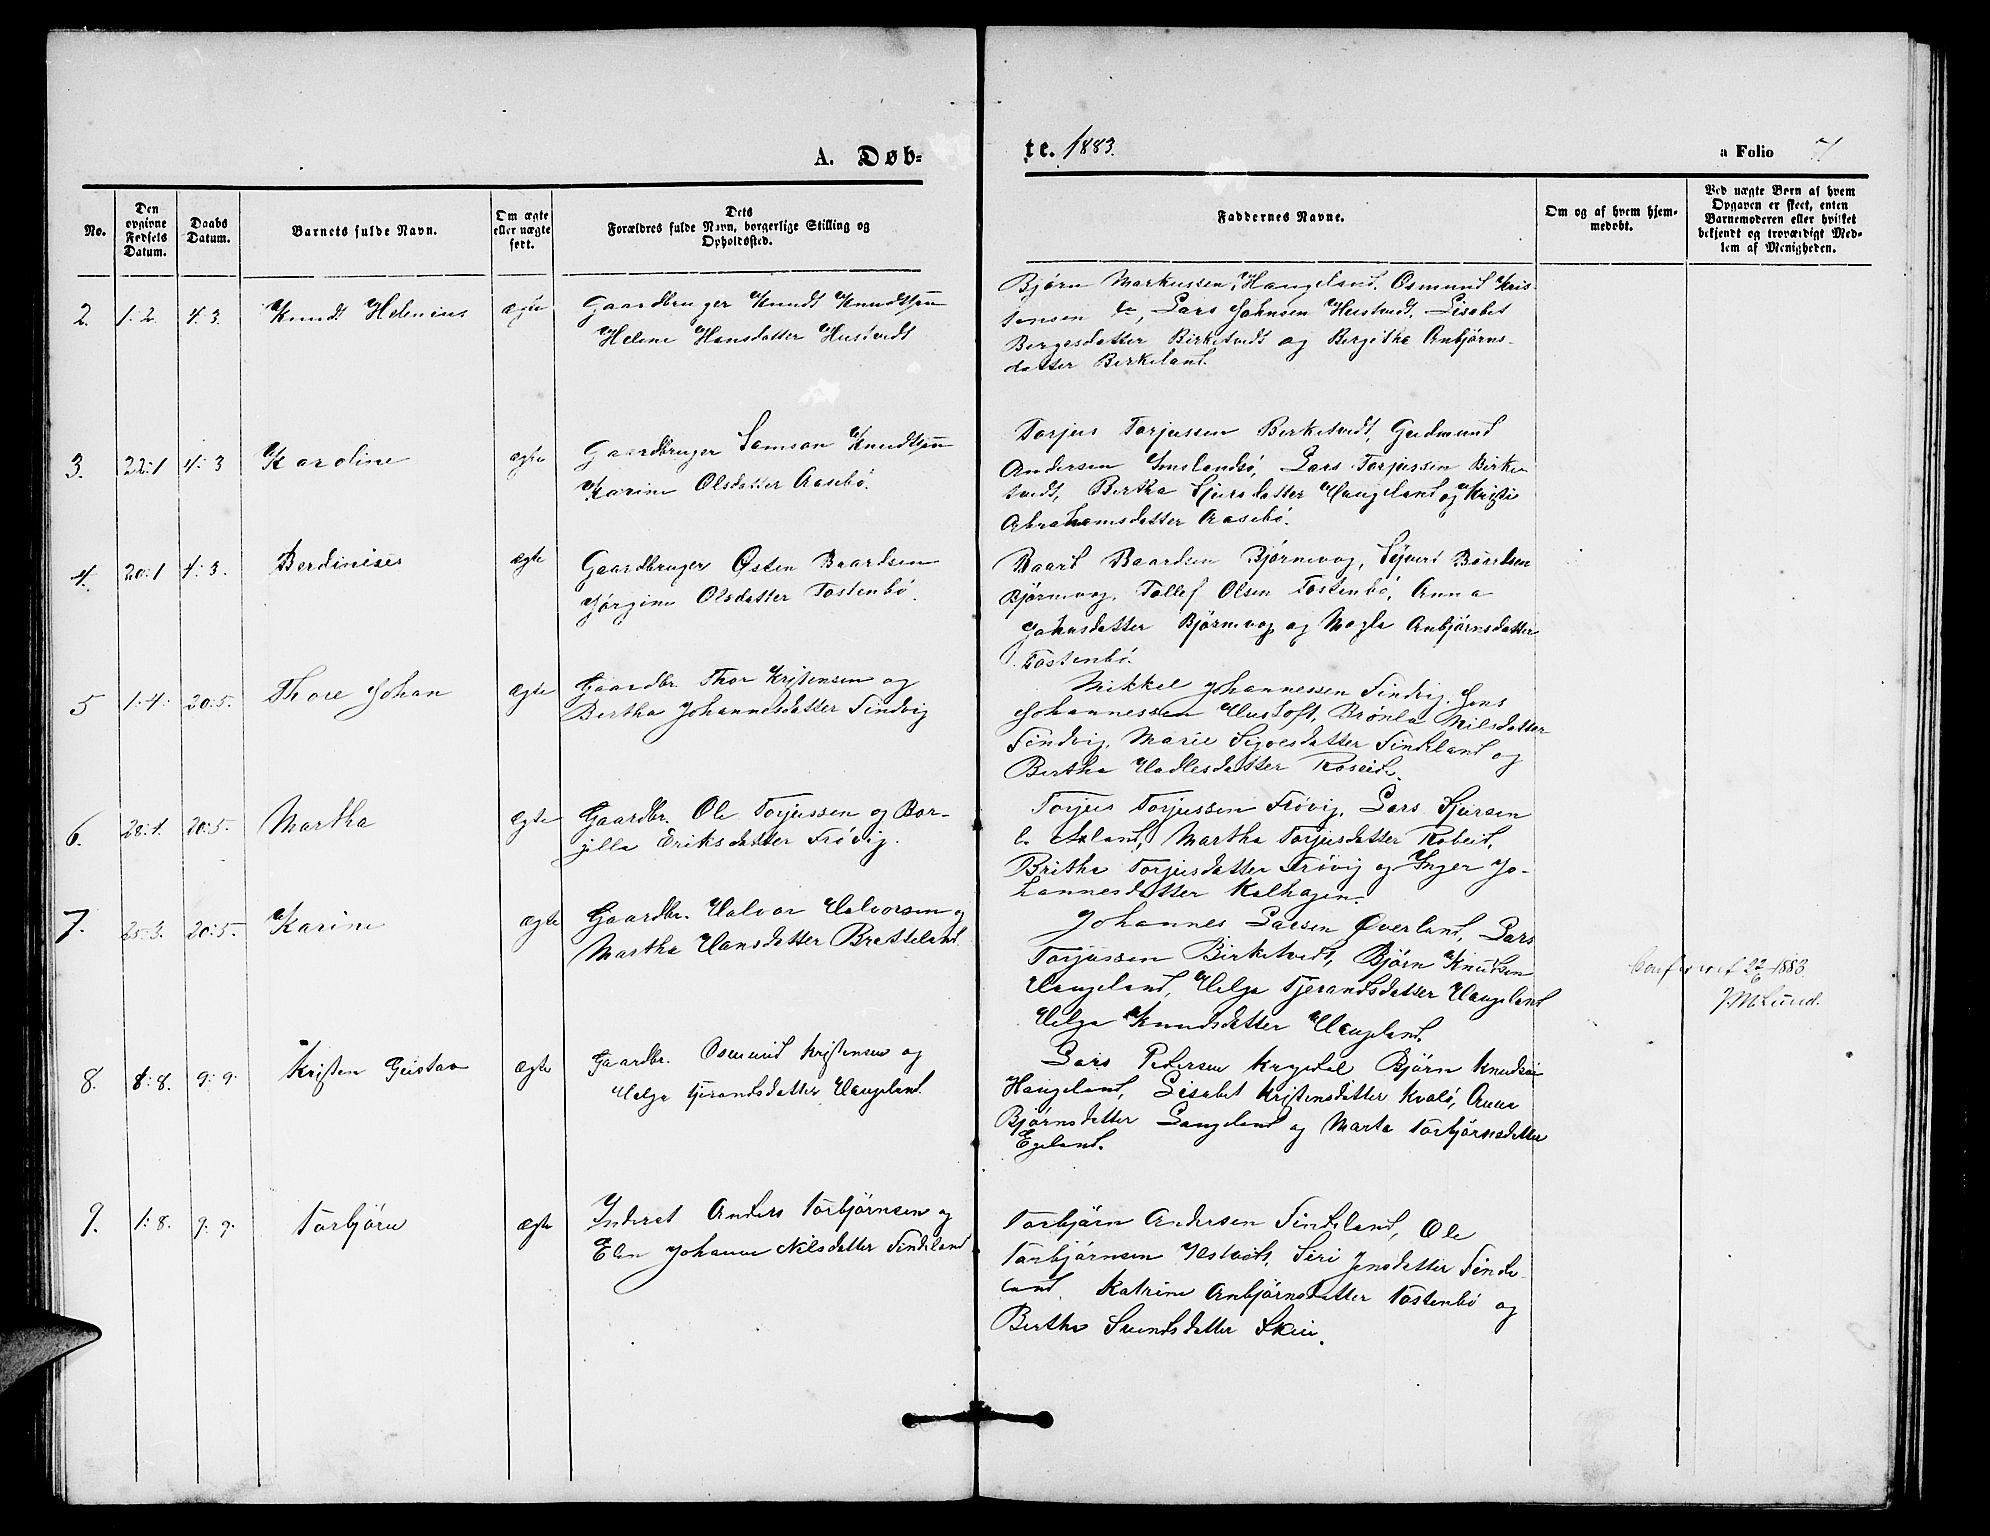 A. Døb-
te. 1883.
a Folio 7
No.
Den opgivne Fødsels Datum.
Daabs Datum.
Barnets fulde Navn.
Om ægte eller uægte født.
Dets Forældres fulde Navn, borgerlige Stilling og Opholdssted.
Faddernes Navne.
Om og af hvem hjemmedøbt.
Ved uægte Børn af hvem Opgaven er skeet, enten Barnemoderen eller hvilket bekjendt og troværdigt Medlem af Menigheden.
2. 1:2. 4:3. Knudt Helenius ægte Gaardbruger Knudt Knudtsen
Helene Hansdatter Hustvedt
Bjørn Markussen Haugeland, Osmund Kris-
tensen do, Lars Johnsen Hustvedt, Lisabet
Bergesdatter Birketvedt og Bergitha Anbjørns-
datter Birkeland.
3. 22:1 4:3 Karoline ægte Gaardbruger Samson Knudtsen
Karine Olsdatter Aasebø.
Torjus Torjussen Birketvedt, Gudmund
Andersen Imslandsø, Lars Torjussen Birke-
tvedt, Bertha Sjursdatter Haugeland og Kristi
Abrahamsdatter Aasebø.
4. 20:1 4:3. Berdinius ægte Gaardbruger Østen Baardsen
Jørgine Olsdatter Tostenbø.
Baard Baardsen Bjørnevog, Sjurd Baardsen
Bjørnevog, Tollef Olsen Tostenbø, Anna
Johnsdatter Bjørnevog og Magla Anbjørnsdatter
Tostenbø.
5 1:4: 20:5. Thore Johan ægte Gaardbr. Thor Kristensen og
Bertha Johannesdatter Sindvig
Mikkel Johannessen Sindvig, Jens
Johannessen Hustoft, Brønla Nilsdatter
Sindvig, Marie Sigvesdatter Sindeland og
Bertha Hadlesdatter Roseide.
6. 20:5. Martha ægte Gaardbr. Ole Torjussen og Bor-
gilla Eriksdatter Frøvig.
Torjus Torjussen Frøvig, Lars Sjursen
Martha Torjusdatter
Britha Torjusdatter Frøvig og Inger Jo-
hannesdatter Kalhagen.
7. 25:3. 20:5. Karine ægte Gaardbr. Halvor Halvorsen og
Martha Hansdatter Bratteland
Johannes Larsen Øverland, Lars
Torjussen Birketvedt, Bjørn Knudsen
Haugeland, Helga Tjerandsdatter Haugeland
Helga Knudsdatter Haugeland.
Confereret 22/6 1883
J. M. Lund.
8. 8:8. 9:9. Kristen Gustav ægte Gaardbr. Osmund Kristensen og
Helga Tjerandsdatter Haugeland.
Lars Pedersen Krygedal Bjørn Knudsen
Haugeland, Lisabet Kristensdatter Kvalø, Anna
Bjørnsdatter Laugeland og Marta Torbjørnsdatter
Egeland.
9. 1:8. 9:9. Torbjørn ægte Inderst Anders Torbjørnsen og
Elen Johanne Nilsdatter Sindeland
Torbjørn Andersen Sindeland, Ole
Torbjørnsen Siri Jensdatter Sinde-
land, Katrine Anbjørnsdatter Tostenbø og
Bertha Svendsdatter Skeie.